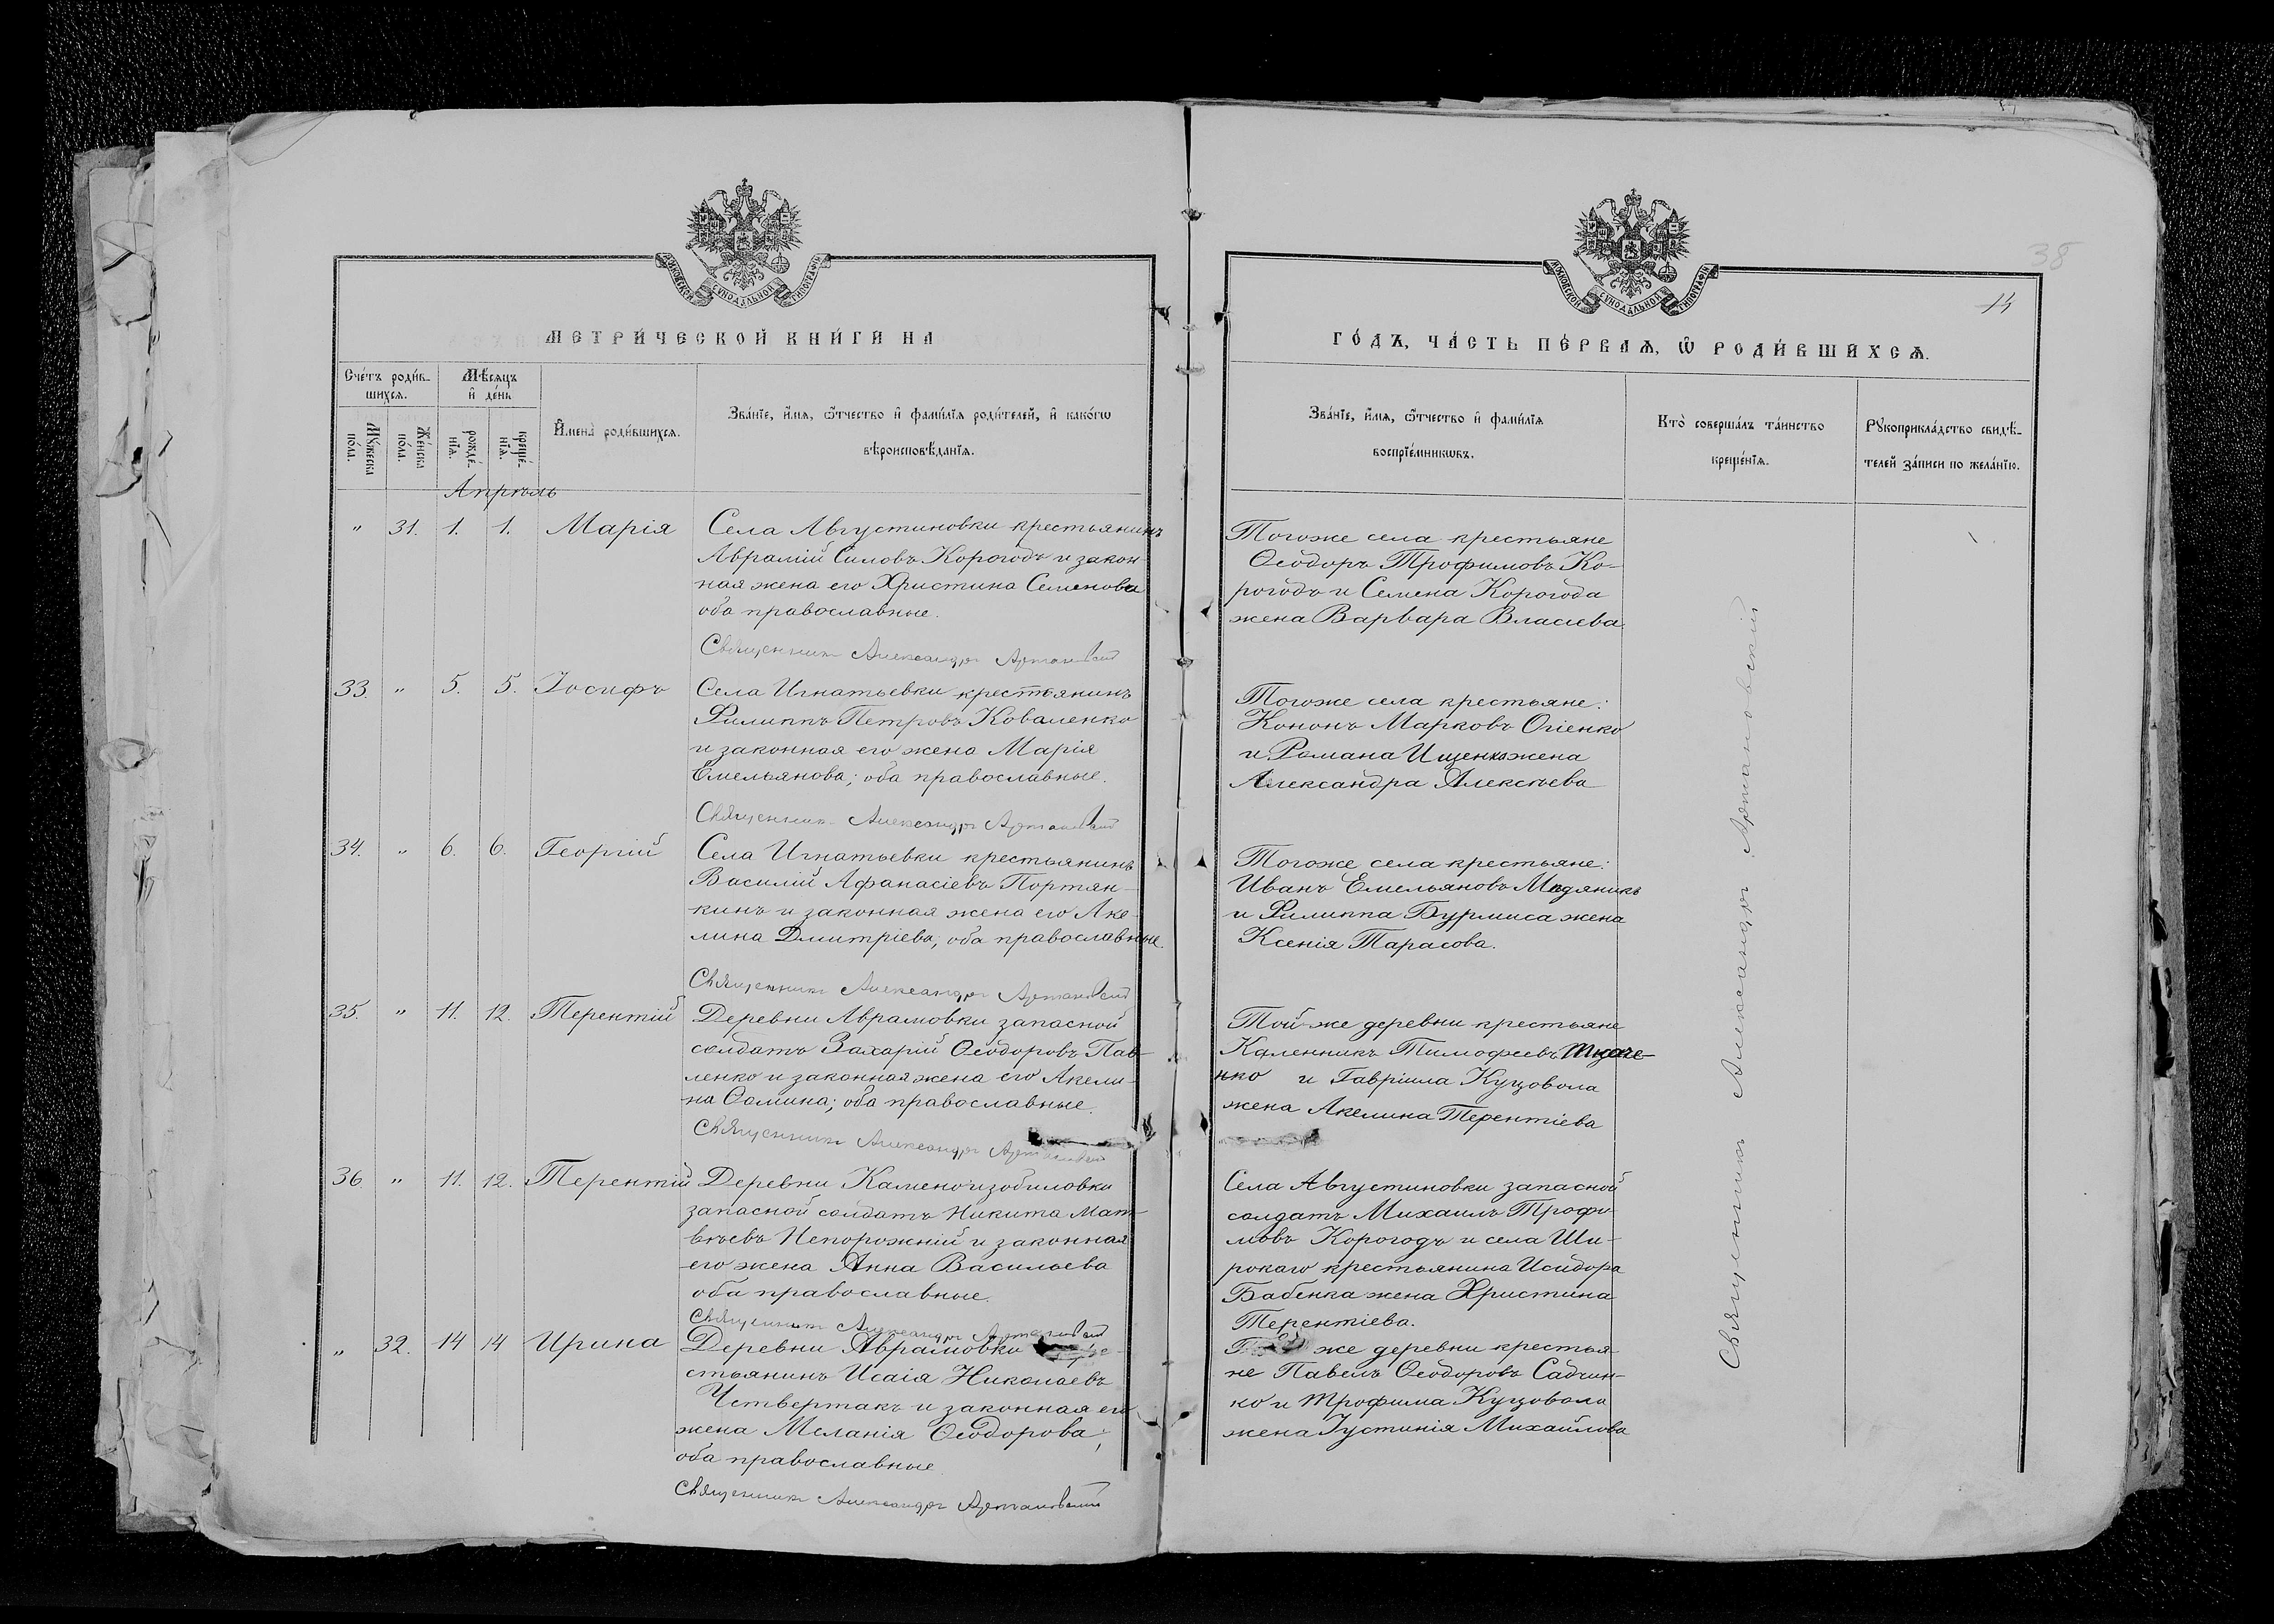 38
14
МЕТРИ́ЧЕСКОЙ КНИ́ГИ НА
ГО́ДЪ, ЧА́СТЬ ПЕ́РВАѦ, Ѡ РОДИ́ВШИХСѦ.
Сче́тъ роди́в-
шихсѧ.
Мѣ́сѧцъ
и де́нь
Му́жеска
по́ла.
Же́нска
по́ла.
рожде́-
нїѧ.
креще́-
нїѧ.
Имена̀ роди́вшихсѧ.
Зва́нїе, и́мѧ, ѻ́тчество и фами́лїѧ роди́телей, и како́гѡ
вѣроисповѣ́данїѧ.
Зва́нїе, и́мѧ, ѻ́тчество и фами́лїѧ
воспрїе́мникѡвъ.
Кто̀ соверша́лъ та́инство
креще́нїѧ.
Рукоприкла́дство свидѣ́-
телей за́писи по жела́нїю.
Апрѣль
" 31. 1. 1. Марія
Села Августиновки крестьянинъ
Аврамій Силовъ Корогодъ и закон
ная жена его Христина Семенова
оба православные.
Священникъ Александръ Артановскій
Тогоже села крестьяне
Ѳеодоръ Трофимовъ Ко-
рогодъ и Семена Корогода
жена Варвара Власіева
33. " 5. 5. Іосифъ
Села Игнатьевки крестьянинъ
Филиппъ Петровъ Коваленко
и законная его жена Марія
Емельянова; оба православные.
Священникъ Александръ Артановскій
Тогоже села крестьяне:
Кононъ Марковъ Огіенко
и Романа Ищенко жена
Александра Алексѣева
34. " 6. 6. Георгій
Села Игнатьевки крестьянинъ
Василій Афанасіевъ Портян-
кинъ и законная жена его Аке-
лина Дмитріева; оба православные.
Священникъ Александръ Артановскій
Тогоже села крестьяне:
Иванъ Емельяновъ Мѣдяникъ
и Филиппа Бурмиса жена
Ксенія Тарасова.
35. " 11. 12. Терентій
Деревни Аврамовки запасной
солдатъ Захарій Ѳеодоровъ Пав-
ленко и законная жена его Акели-
на Ѳомина; оба православные.
Священникъ Александръ Артановскій
Той же деревни крестьяне
Каленникъ Тимофеевъ Ткаче-
нко и Гавріила Куцовола
жена Акелина Терентіева
36. " 11. 12. Терентій
Деревни Каменоизобиловки
запасной солдатъ Никита Мат-
вѣевъ Непорожній и законная
его жена Анна Васильева
оба православные.
Священникъ Александръ Артановскій
Села Августиновки запасной
солдатъ Михаилъ Трофи-
мовъ Корогодъ и села Ши-
рокаго крестьянина Исидора
Бабенка жена Христина
Терентіева.
" 32. 14 14 Ирина
Деревни Аврамовки кре-
стьянинъ Исаія Николаевъ
Четвертакъ и законная его
жена Меланія Ѳеодорова;
оба православные
Священникъ Александръ Артановскій
же деревни крестья-
не Павелъ Ѳеодоровъ Садчин-
ко и Трофима Куцовола
жена Іустинія Михайлова
Священникъ Александръ Артановскій